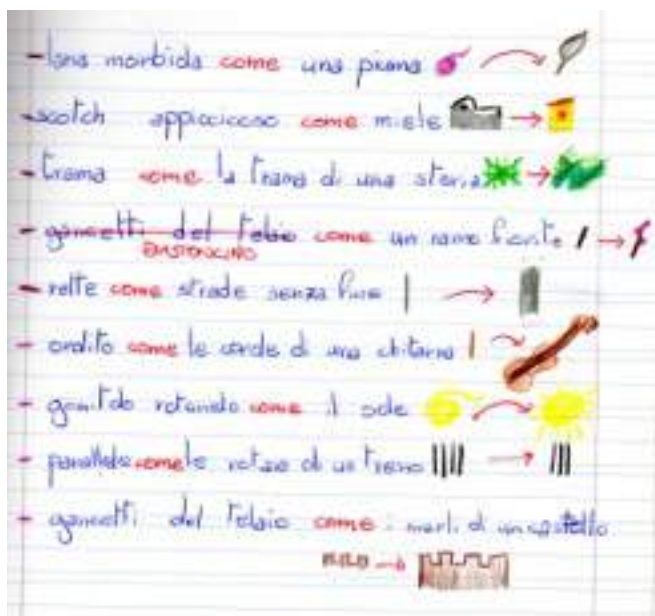 - lana morbida come una piuma
- scotch appiccicoso come miele
- trama come la trama di una storia
- gancetti del telaio come un ramo fiorito
BASTONCINO
- rette come strade senza fine
- ordito come le corde di una chitarra
- gomitolo rotondo come il sole
- parallele come le rotaie di un treno
- gancetti del telaio come i merli di un castello